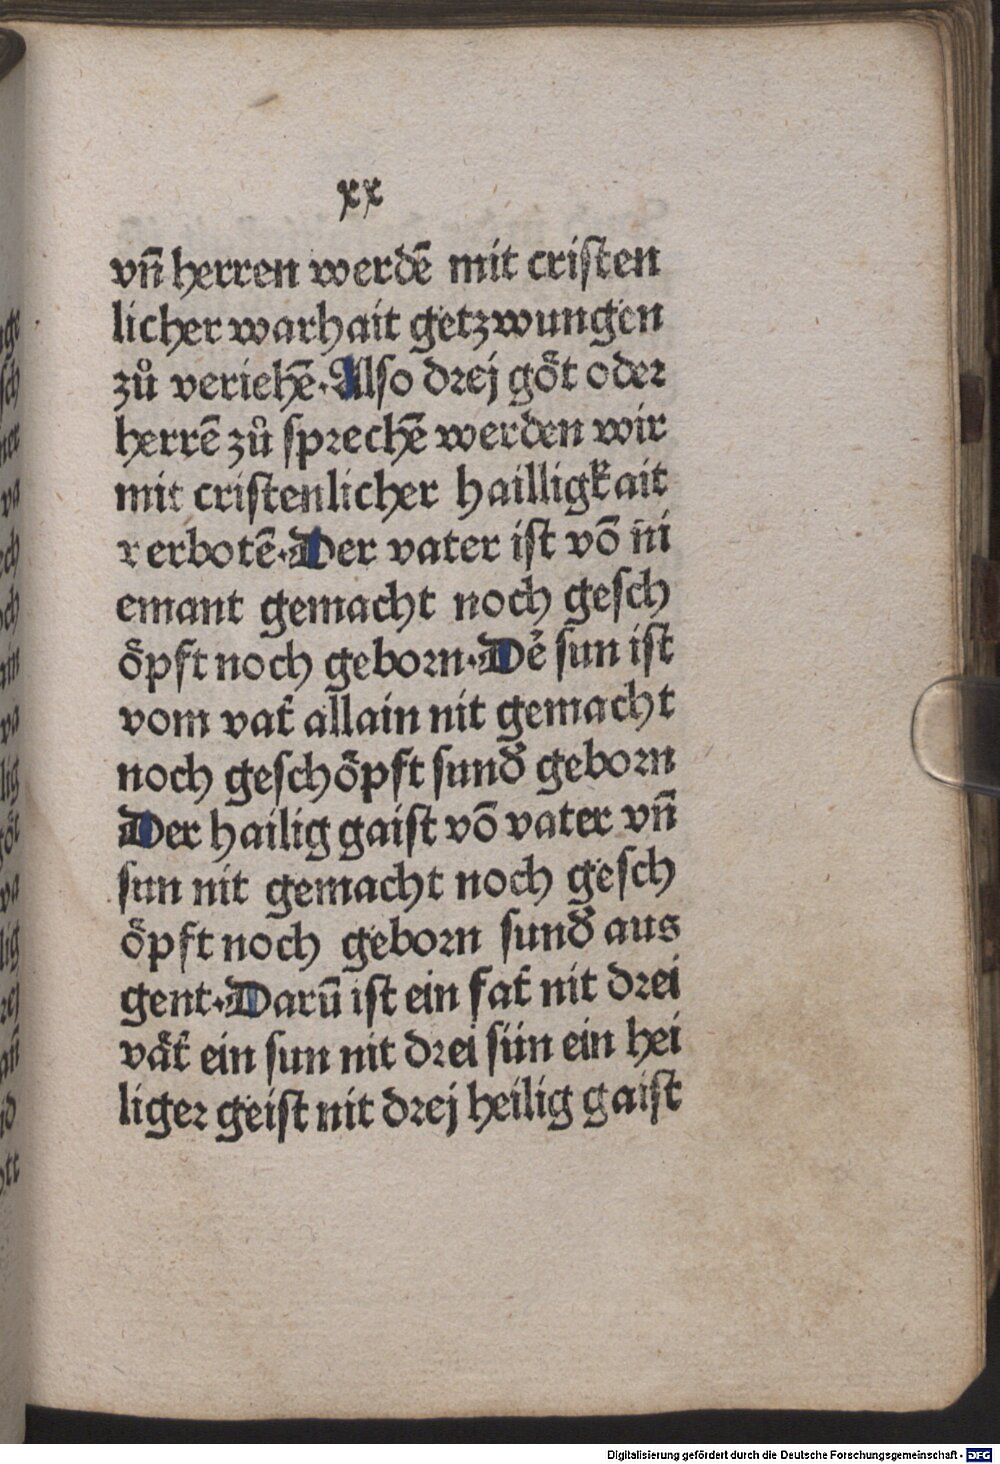 xx
vn̄ herren werdē mit cristen
licher warhait getzwungen
zů veriehē. Also drej göt oder
herrē zů sprechē werden wir
mit cristenlicher hailligkait
verbotē. Der vater ist vō ni
emant gemacht noch gesch
öpft noch geborn. De᷑ sun ist
vom vat᷑ allain nit gemacht
noch geschöpft sund᷑ geborn
Der hailig gaist vō vater vn̄
sun nit gemacht noch gesch
öpft noch geborn sund᷑ aus
gent. Darū ist ein fat᷑ nit drei
vät᷑ ein sun nit drei sün ein hei
liger geist nit drej heilig gaist
Digitalisierung gefördert durch die Deutsche Forschungsgemeinschaft - DFG